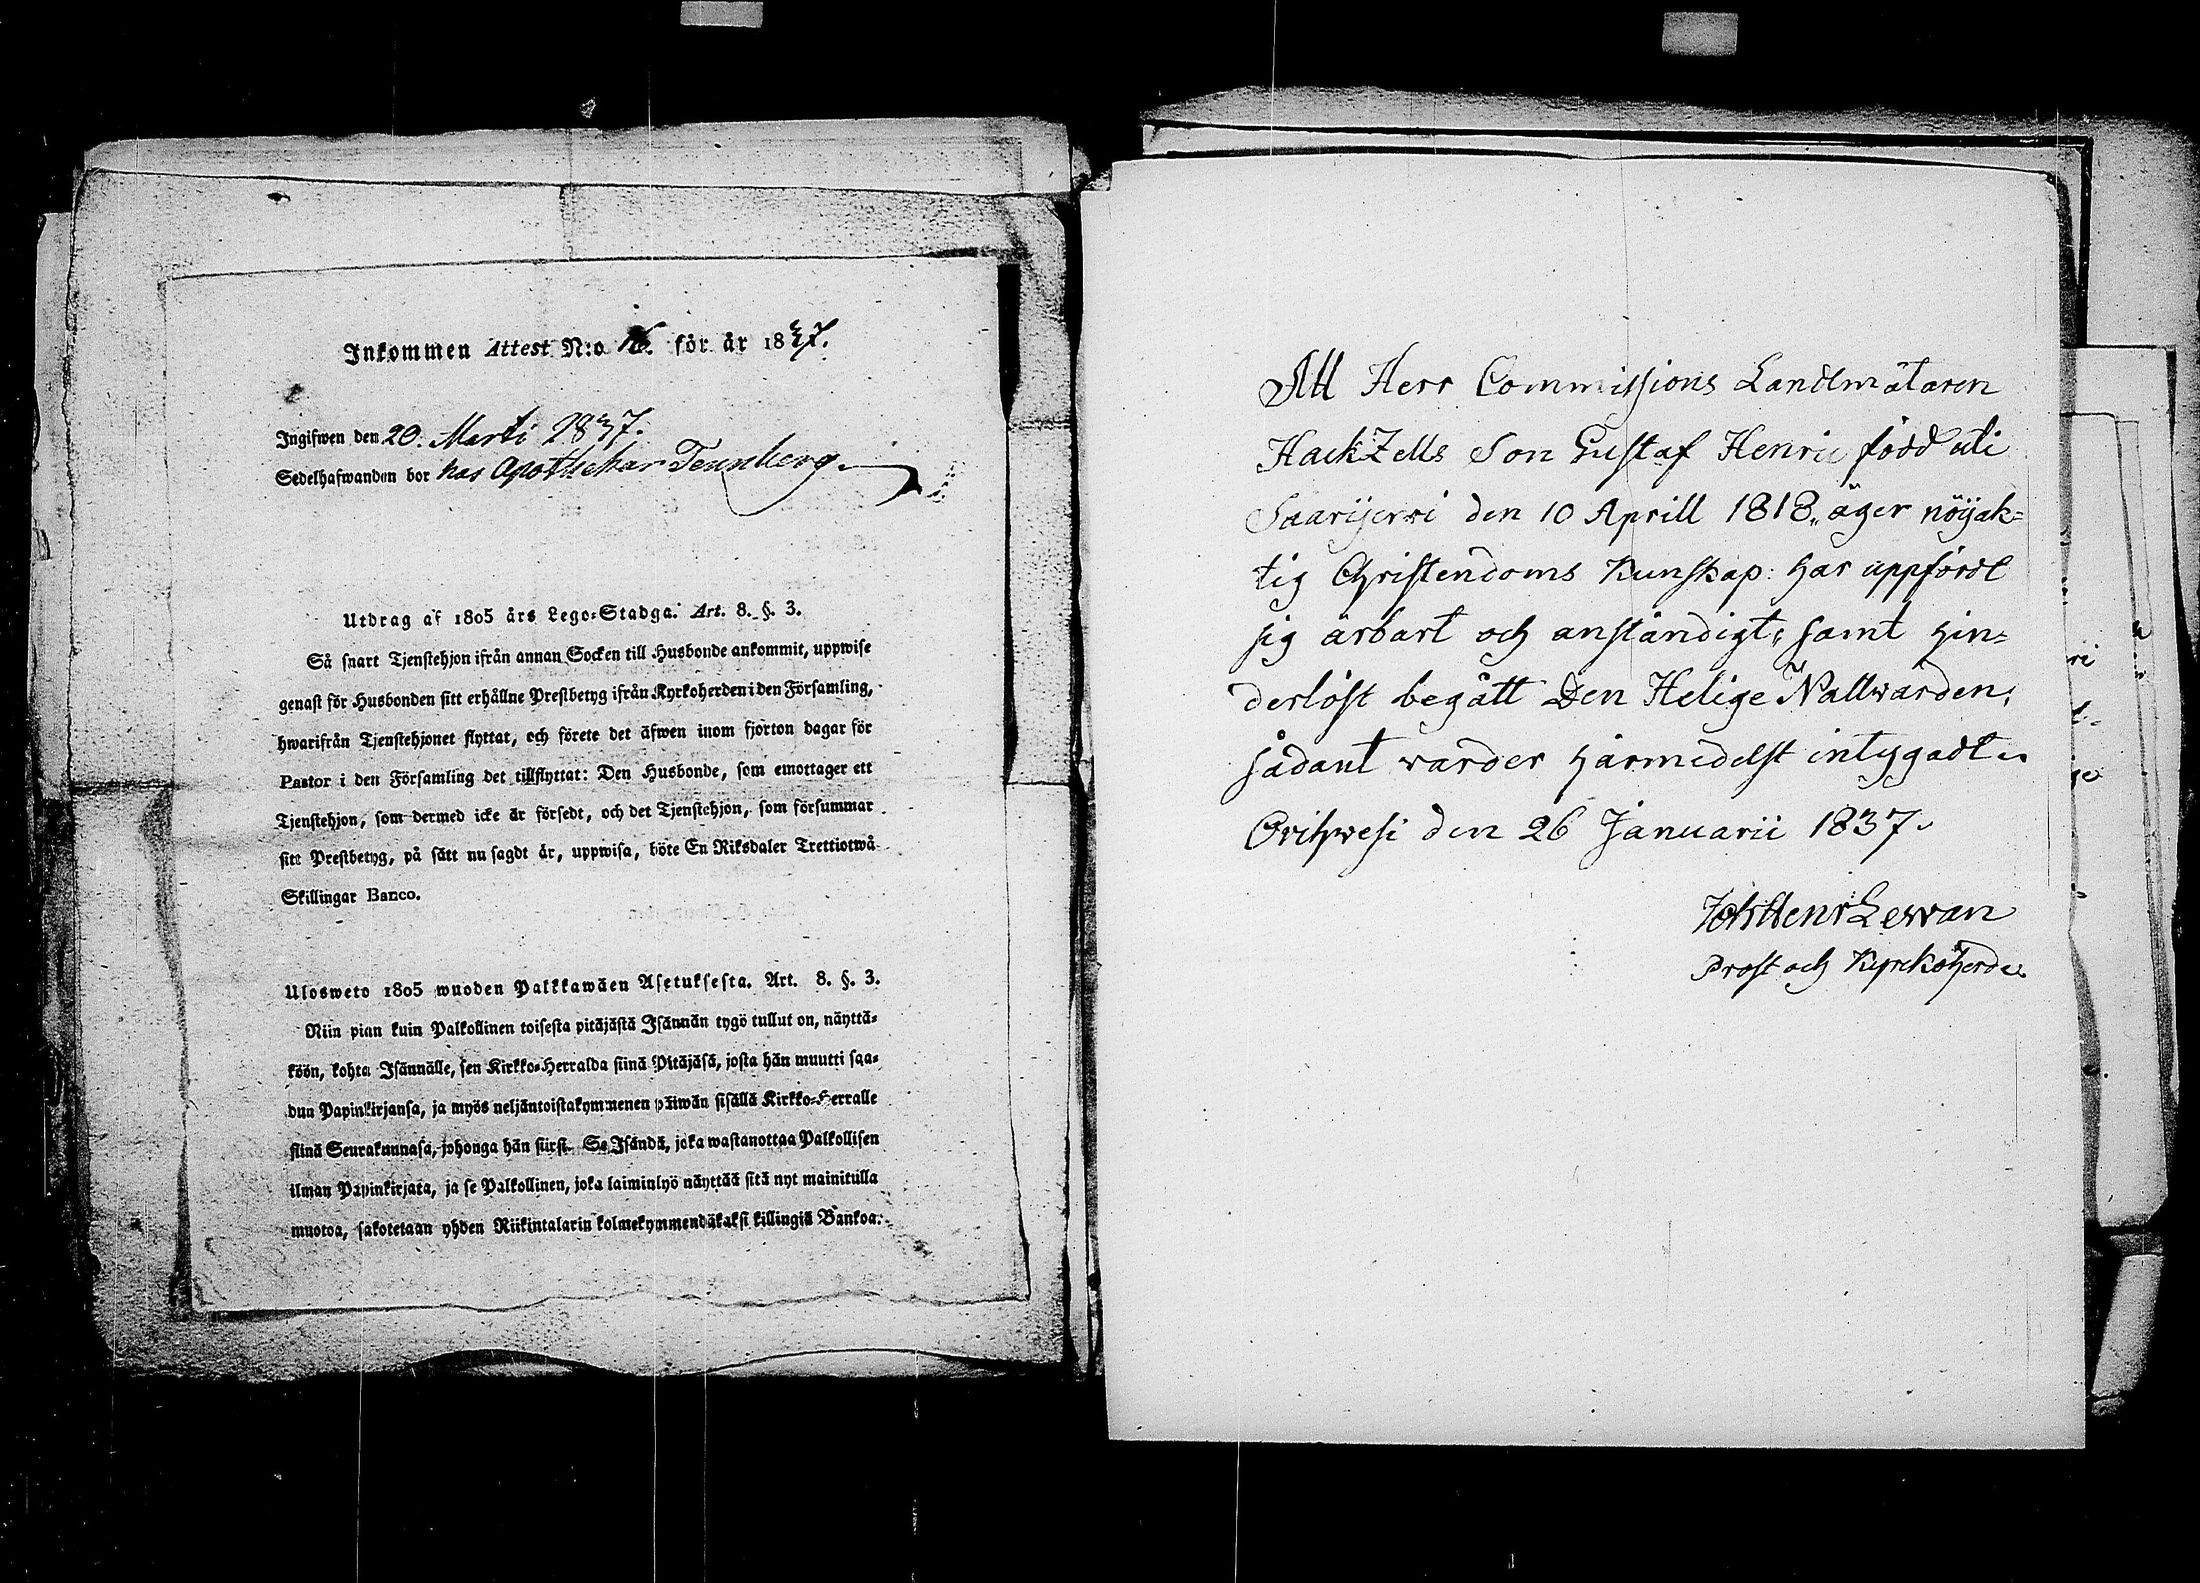 Inkommen Attest N:o 16. för år 1837.
Ingifwen den 20. Marti 1837.
Sedelhafwanden bor hos Apothekar Tennberg.
Utdrag af 1805 års Lego-Stadga. Art. 8. §. 3.
Så snart Tjenstehjon ifrån annan Socken till Husbonde ankommit, uppwise
genast för Husbonden sitt erhållne Prestbetyg ifrån Kyrkoherden i den Församling,
hwarifrån Tjenstehjonet flyttat, och förete det äfwen inom fjorton dagar för
Pastor i den Församling det tillflyttat: Den Husbonde, som emottager ett
Tjenstehjon, som dermed icke är försedt, och det Tjenstehjon, som försummar
sitt Prestbetyg, på sätt nu sagdt är, uppwisa, böte En Riksdaler Trettiotwå
Skillingar Banco.
Ulosweto 1805 wuoden Palkkawäen Asetuksesta. Art. 8. §. 3.
Niin pian kuin Palkollinen toisesta pitäjästä Isännän tygö tullut on, näyttä-
köön, kohta Isännälle, sen Kirkko-Herralda siinä Pitäjäsä, josta hän muutti saa-
dun Papinkirjansa, ja myös neljäntoistakymmenen päiwän sisällä Kirkko-Herralle
siinä Seurakunnasa, johonga hän siirsi. Se Isändä, joka wastanottaa Palkollisen
ilman Papinkirjata, ja se Palkollinen, joka laiminlyö näyttää sitä nyt mainitulla
muotoa, sakotetaan yhden Riikintalarin kolmekymmendäkaksi killingiä Bankoa.
Att Herr Commissions Landtmätaren
HackZells Son Gustaf Henric född uti
Saarijerwi den 10 Aprill 1818, äger nöijak-
tig Christendoms Kunskap: har uppfördt
sig ärbart och anständigt, samt hin-
derlöst begått Den Helige Nattwarden;
sådant warder härmedelst intygadt.
Orihwesi den 26 Januarii 1837.
Joh Henr Lewan
Prost och Kyrckoherde.